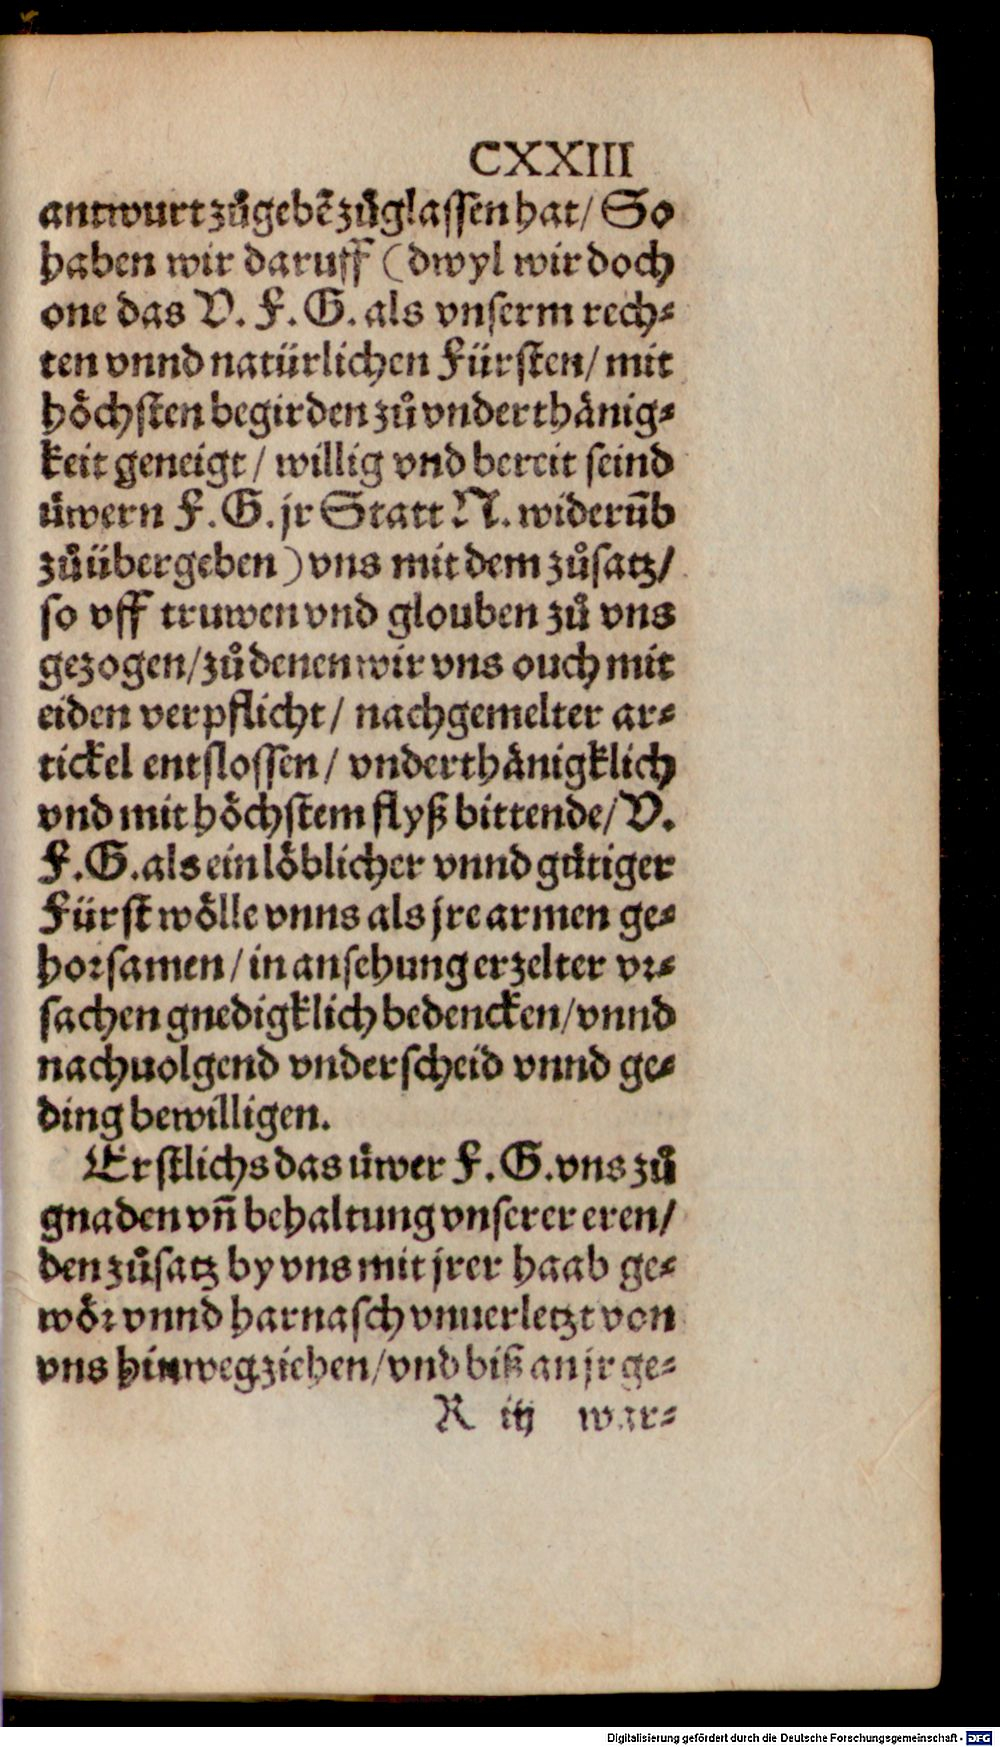 CXXIII
antwurt zůgebẽ zůglassen hat/ So
haben wir daruff (dwyl wir doch
one das V. F. G. als vnserm rech⸗
ten vnnd natürlichen Fürsten/ mit
höchsten begirden zů vnderthänig⸗
keit geneigt/ willig vnd bereit seind
üwern F. G. jr Statt N. widerūb
zůübergeben) vns mit dem zůsatz/
so vff truwen vnd glouben zů vns
gezogen/ zů denen wir vns ouch mit
eiden verpflicht/ nachgemelter ar⸗
tickel entslossen/ vnderthänigklich
vnd mit höchstem flyß bittende/ V.
F. G. als ein löblicher vnnd gütiger
Fürst wölle vnns als jre armen ge⸗
horsamen/ in ansehung erzelter vr⸗
sachen gnedigklich bedencken/ vnnd
nachuolgend vnderscheid vnnd ge⸗
ding bewilligen.
Erstlichs das üwer F. G. vns zů
gnaden vñ behaltung vnserer eren/
den zůsatz by vns mit jrer haab ge⸗
wör vnnd harnasch vnuerletzt von
vns hinweg ziehen/ vnd biß an jr ge⸗
R iij war⸗
Digitalisierung gefördert durch die Deutsche Forschungsgemeinschaft - DFG